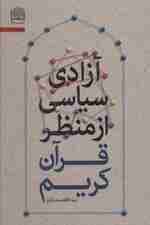 آزادی
سیاسی
از منظر
قرآن
کریم